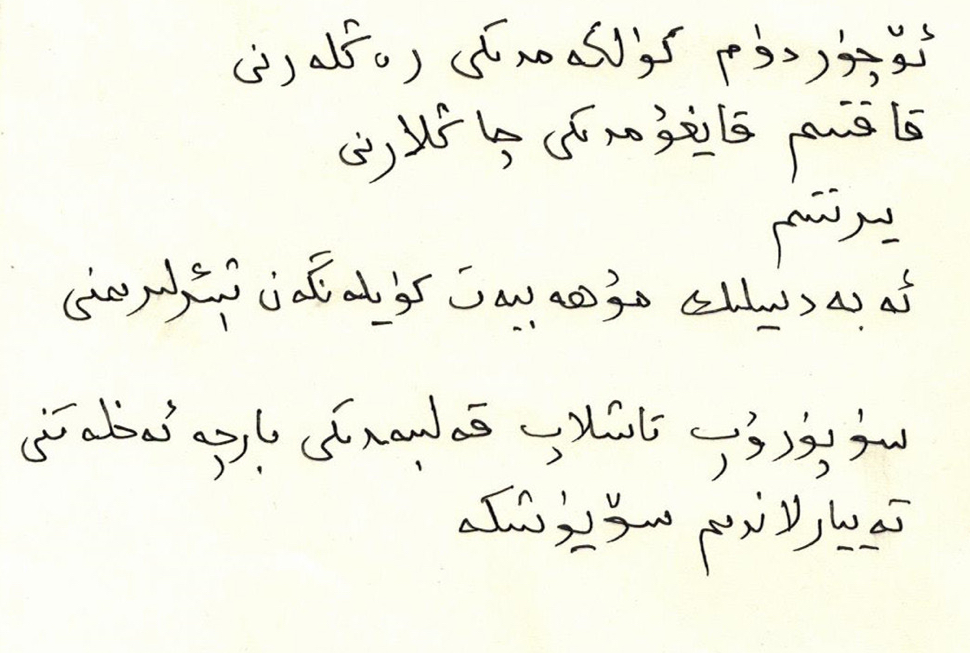 ئۆچۈردۈم كۈلگەمدىكى رەڭلەرنى
قاقتىم قايغۇمدىكى چاڭلارنى
يىرتتىم
ئەبەدىيلىك مۇھەببەت كۈيلەنگەن شېئىرلىرىمنى
سۈپۈرۈپ تاشلاپ قەلبىمدىكى بارچە ئەخلەتنى
تەييارلاندىم سۆيۈشكە